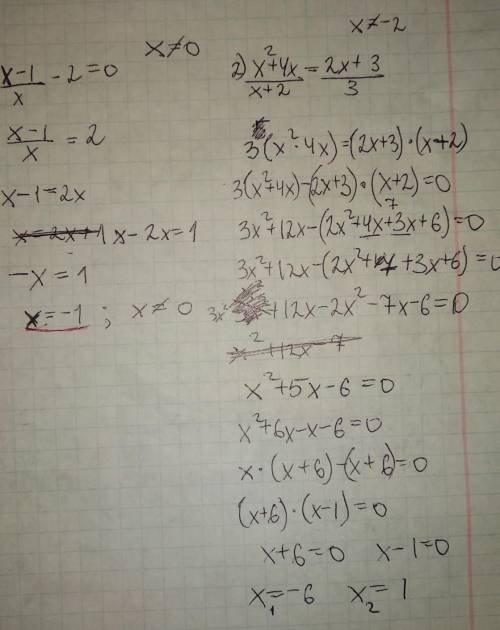 x≠0
x-1/x - 2 = 0
x-1/x = 2
x-1=2x
x=2x+1 x-2x=1
-x=1
x=-1 ; x≠0
x≠-2
2) x²+4x/x+2 = 2x+3/3
3(x²·4x)=(2x+3)·(x+2)
3(x²+4x)-(2x+3)·(x+2)=0
3x²+12x-(2x²+4x+3x+6)=0
7
3x²+12x-(2x²+ +3x+6)=0
3x² +12x-2x²-7x-6=0
x²+12x-7
x²+5x-6=0
x²+6x-x-6=0
x·(x+6)-(x+6)=0
(x+6)·(x-1)=0
x+6=0 x-1=0
x₁=-6 x₂=1